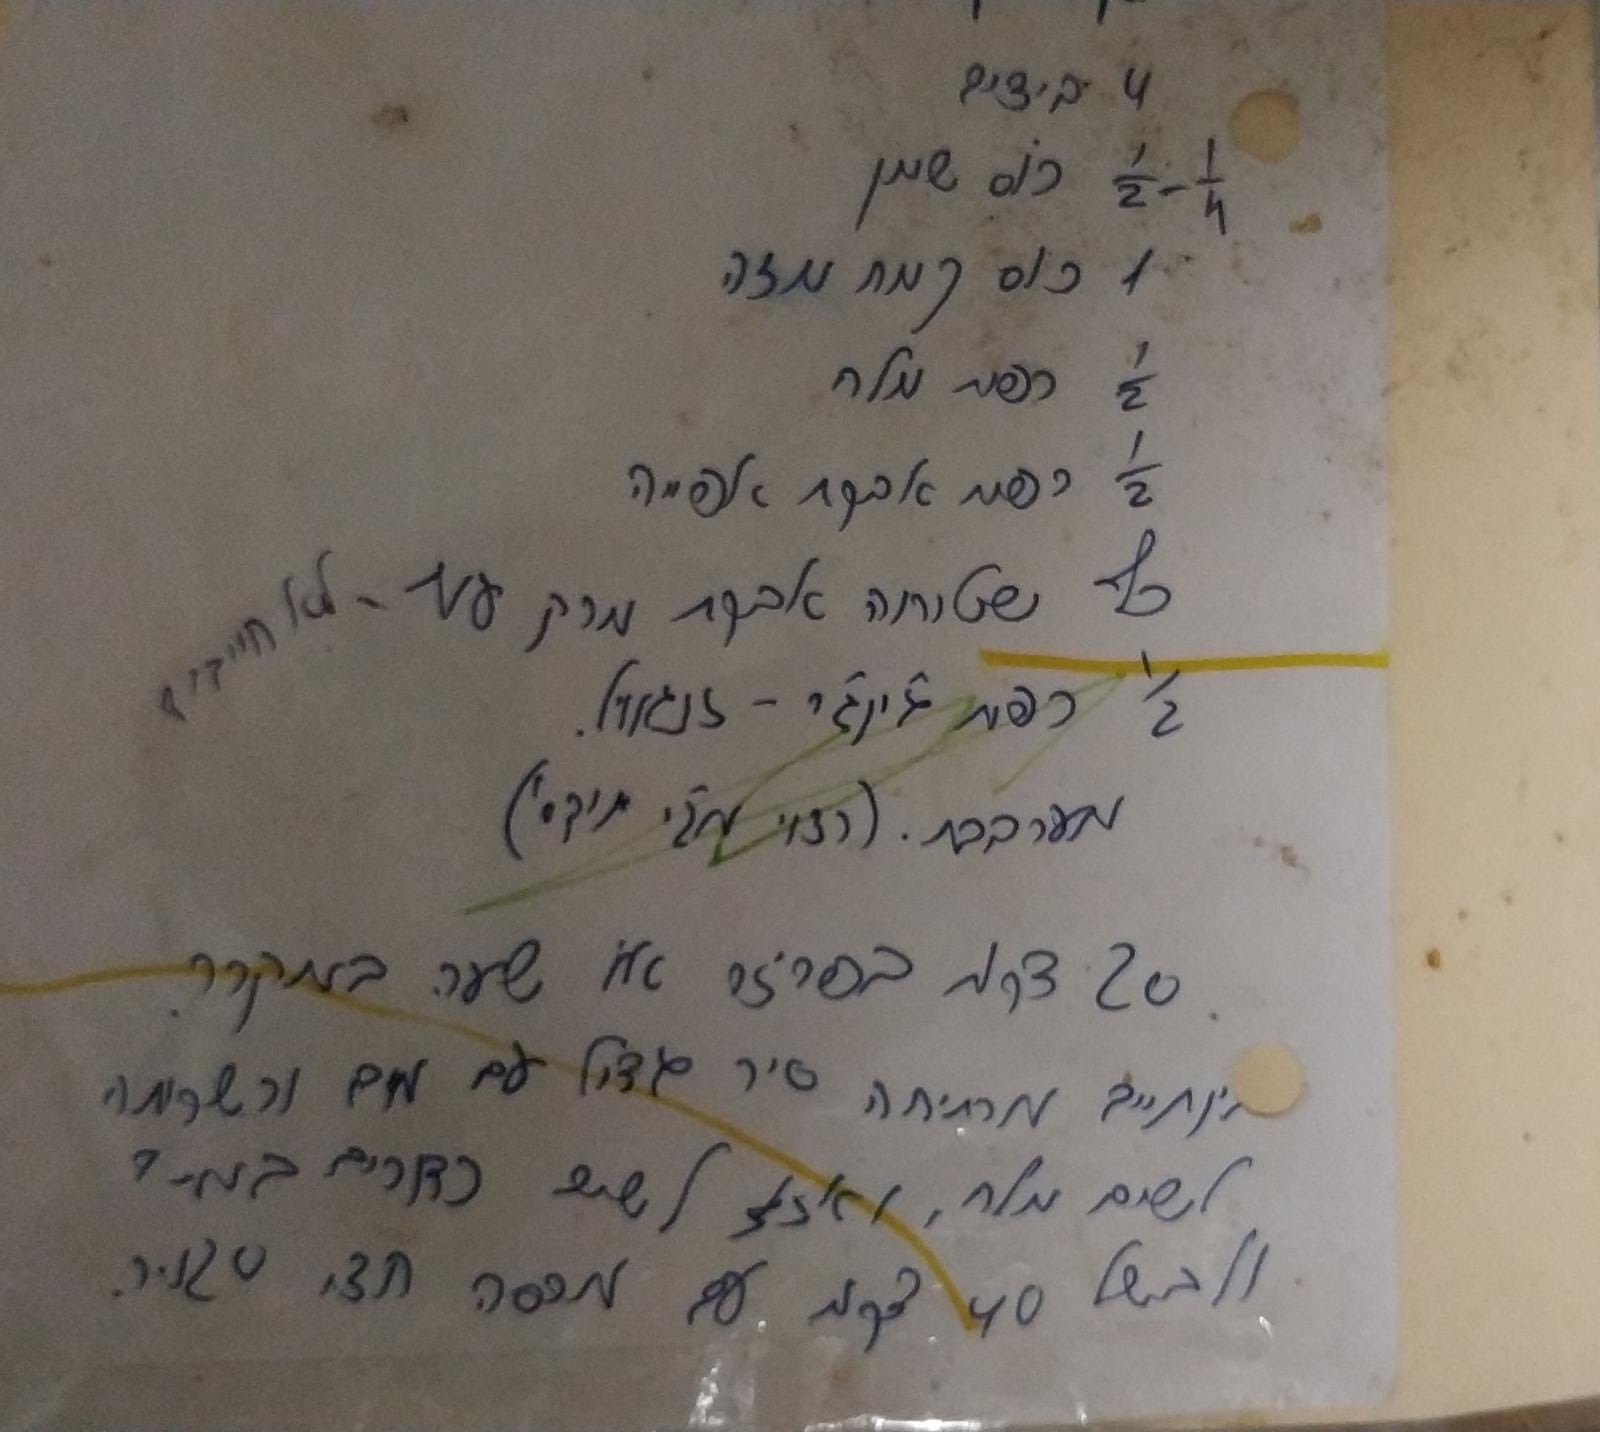 4 ביצים
1/4 - 1/2 כוס שמן
1 כוס קמח מצה
1/2 כפית מלח
1/2 כפית אבקת אפייה
כף שטוחה אבקת מרק עוף - לא חייבים
1/2 כפית ג'ינג'ר - זנגוויל.
מערבבת. (רצוי
20 דקות בפריזר או שעה במקרר.
בינתיים מרתיחה סיר גדול עם מים וכשרותח
לשים מלח, ואז לשים כדורים במים
ולבשל 40 דקות עם מכסה חצי סגור.